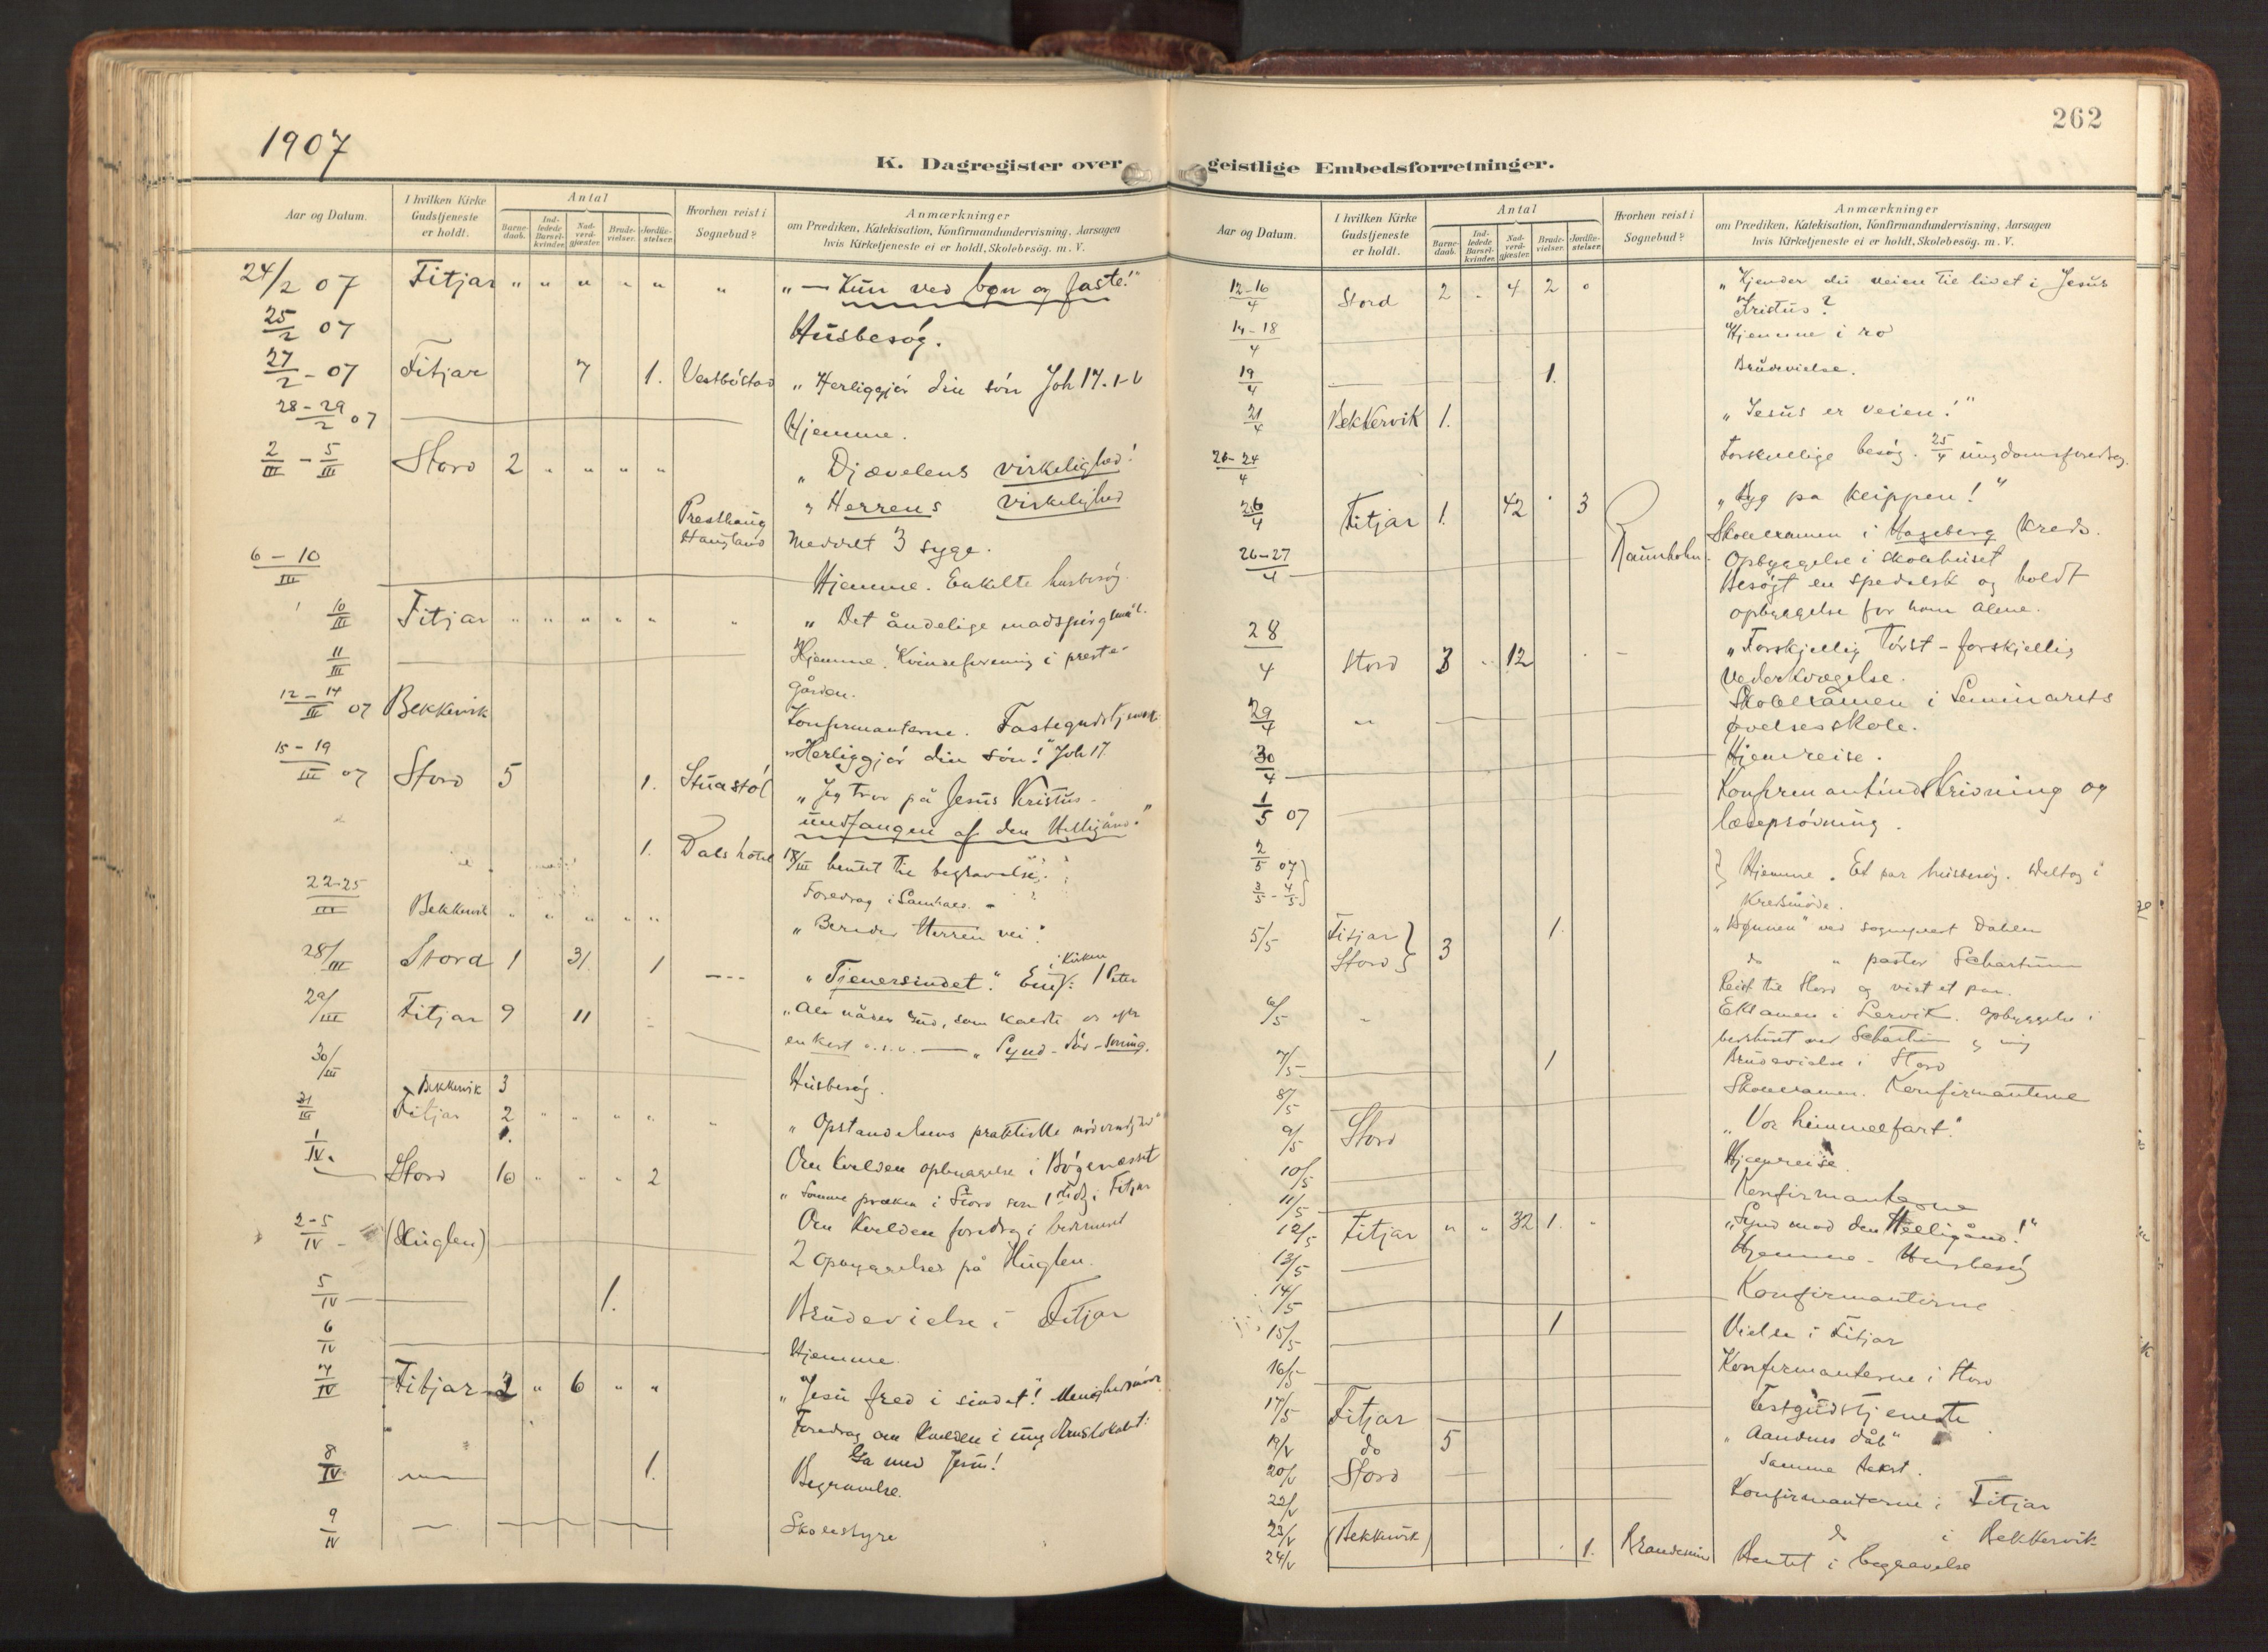 1907
K. Dagregister over
Aar og Datum.
I hvilken Kirke Gudstjeneste er holdt.
Antal
Barnedaab.
Indledede Barselkvinder.
Nadverdgjæster.
Brudevielser.
Jordfæstelser.
Hvorhen reist i Sognebud?
Anmærkninger
om Prædiken, Katekisation, Konfirmandundervisning, Aarsagen
hvis Kirketjeneste ei er holdt, Skolebesög. m. V.
24/2 07 Fitjar " " " " " " "— Kun ved bøn og faste!"
25/2 07 Husbesøg.
27/2 - 07 Fitjar 7 1. Vestbøstad "Herliggjør din søn Joh 17.
28-29/2 07 — Hjemme.
2/III - 5/III Stord 2 " " " " "Djævelens virkelighed!
" Herrens virkelighed
Presthaug
Haugland Meddelt 3 syge.
6-10/III — Hjemme. Enkelte husbesøg.
10/III Fitjar " " " " " " " Det åndelige madspørgsmål.
11/III — Hjemme. Kvindeforening i preste-
gården.
12-14/III 07 Bekkervik Konfirmanterne. Fastegudstjeneste
"Herliggjør din søn!" Joh 17
15-19/III 07 Stord 5 1. Stuastøl "Jeg tror på Jesus Kristus -
undfangen af den Helligånd."
1. Dals hotel 18/III hentet til begravelse.
Foredrag i
22-25/III Bekkervik " " " " " "Bereder Herren vei".
28/III Stord 1 31. 1 --- "Tjenersindet". i Kirken 1 Peter
29/III Fitjar 9 11 "Al nådes Gud, som kaldte os
o.s.v. — "Synd - død - soning.
30/III Husbesøg.
Bekkervik 3
31/III Fitjar 2 " " " " " "Opstandelsens praktiske nødvendighed"
1.
1/IV. Om kvelden opbyggelse i
Stord 10 " " " 2 "Samme præken i Stord som i Fitjar
Om kvelden foredrag i bedehuset
2-5/IV - (Huglen) 2 opbyggelser på Huglen.
5/IV — 1. Brudevielse i Fitjar
6/IV Hjemme.
7/IV Fitjar 2 " 6 " " "Jesu fred i sindet"! Menighedsmøde
Foredrag om kvelden i ungdomslokalet:
Gå med Jesus!
8/IV — 1. Begravelse.
9/IV — Skolestyre
262
geistlige Embedsforretninger.
Aar og Datum.
I hvilken Kirke Gudstjeneste er holdt.
Antal
Barnedaab.
Indledede Barselkvinder.
Nadverdgjæster.
Brudevielser.
Jordfæstelser.
Hvorhen reist i Sognebud?
Anmærkninger
om Prædiken, Katekisation, Konfirmandundervisning, Aarsagen
hvis Kirketjeneste ei er holdt, Skolebesög. m. V.
12-16/4 Stord 2 " 4 2 " "Kjender du veien til livet i Jesus
Kristus?
14-18/4 Hjemme i ro
19/4 — 1. Brudevielse.
21/4 Bekkervik 1. "Jesus er veien!"
Forskjellige besøg. 25/4 ungdomsforedrag.
26/4 Fitjar 1. 42 " 3 "Byg på klippen!"
Skoleexamen i Hageberg kreds.
26-27/4 — Raunholm. Opbyggelse i skolehuset
Besøgt en spedalsk og holdt
opbyggelse for ham alene.
28/4 Stord 3 " 12 "Forskjellig tørst - forskjellig
vederkvægelse.
29/4 " Skoleexamen i Seminarets
øvelsesskole.
30/4 — Hjemreise.
1/5 07 — Konfirmantindskrivning og
læseprøvning.
2/5 07 Hjemme. Et par husbesøg. Deltog i
3/5 - 4/5 kredsmøde.
5/5 Fitjar 1. "Bønnen" ved sogneprest Dahlen
Stord 3 do " pastor Schartum
Reist til Stord og viet et par.
6/5 " Examen i Lervik. Opbyggelse i
bedehuset ved og mig
7/5 — 1 Brudevielse i Stord
8/5 Skoleexamen. Konfirmanterne
9/5 Stord "Vor himmelfart".
10/5 Hjemreise.
11/5 — Konfirmanterne
12/5 Fitjar " " 32 1. " "Synd mod den Helligånd!"
13/5 — Hjemme - Husbesøg
14/5 — Konfirmanterne
15/5 — 1 Vielse i Fitjar
16/5 — Konfirmanterne i Stord
17/5 Fitjar — Festgudstjeneste
19/V do 5 "Aandens dåb"
20/V Stord Samme tekst.
22/V Konfirmanterne i Fitjar
23/V (Bekkervik) do i Bekkervik
24/V 1. Hentet i begravelse